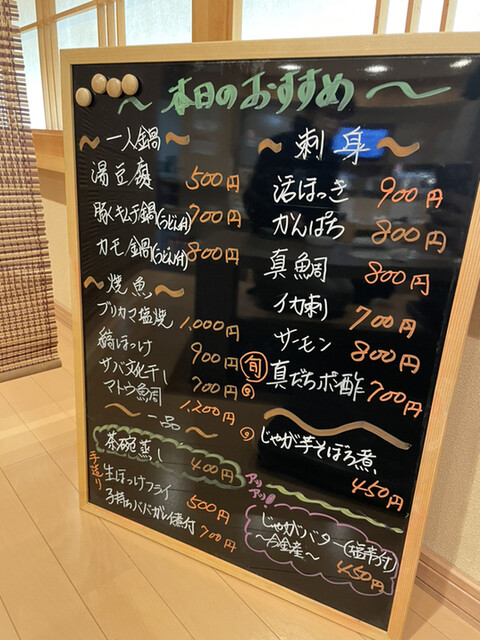 ～本日のおすすめ～
～一人鍋～
湯豆腐 500円
豚キムチ鍋(うどん付) 700円
カモ鍋(うどん付) 800円
～焼魚～
ブリカマ塩焼 1,000円
縞ほっけ 900円
サバ文化干し 700円
マトウ鯛 1,200円
～一品～
茶碗蒸し 400円
手造り
生ほっけフライ 500円
子持ちババガレイ煮付 700円
～刺身～
活ほっき 900円
かんぱち 800円
真鯛 800円
イカ刺 700円
サーモン 800円
旬 真だちポ酢 700円
じゃが芋そぼろ煮 450円
アツアツ!!
じゃがバター(塩辛付)
～今金産～ 450円